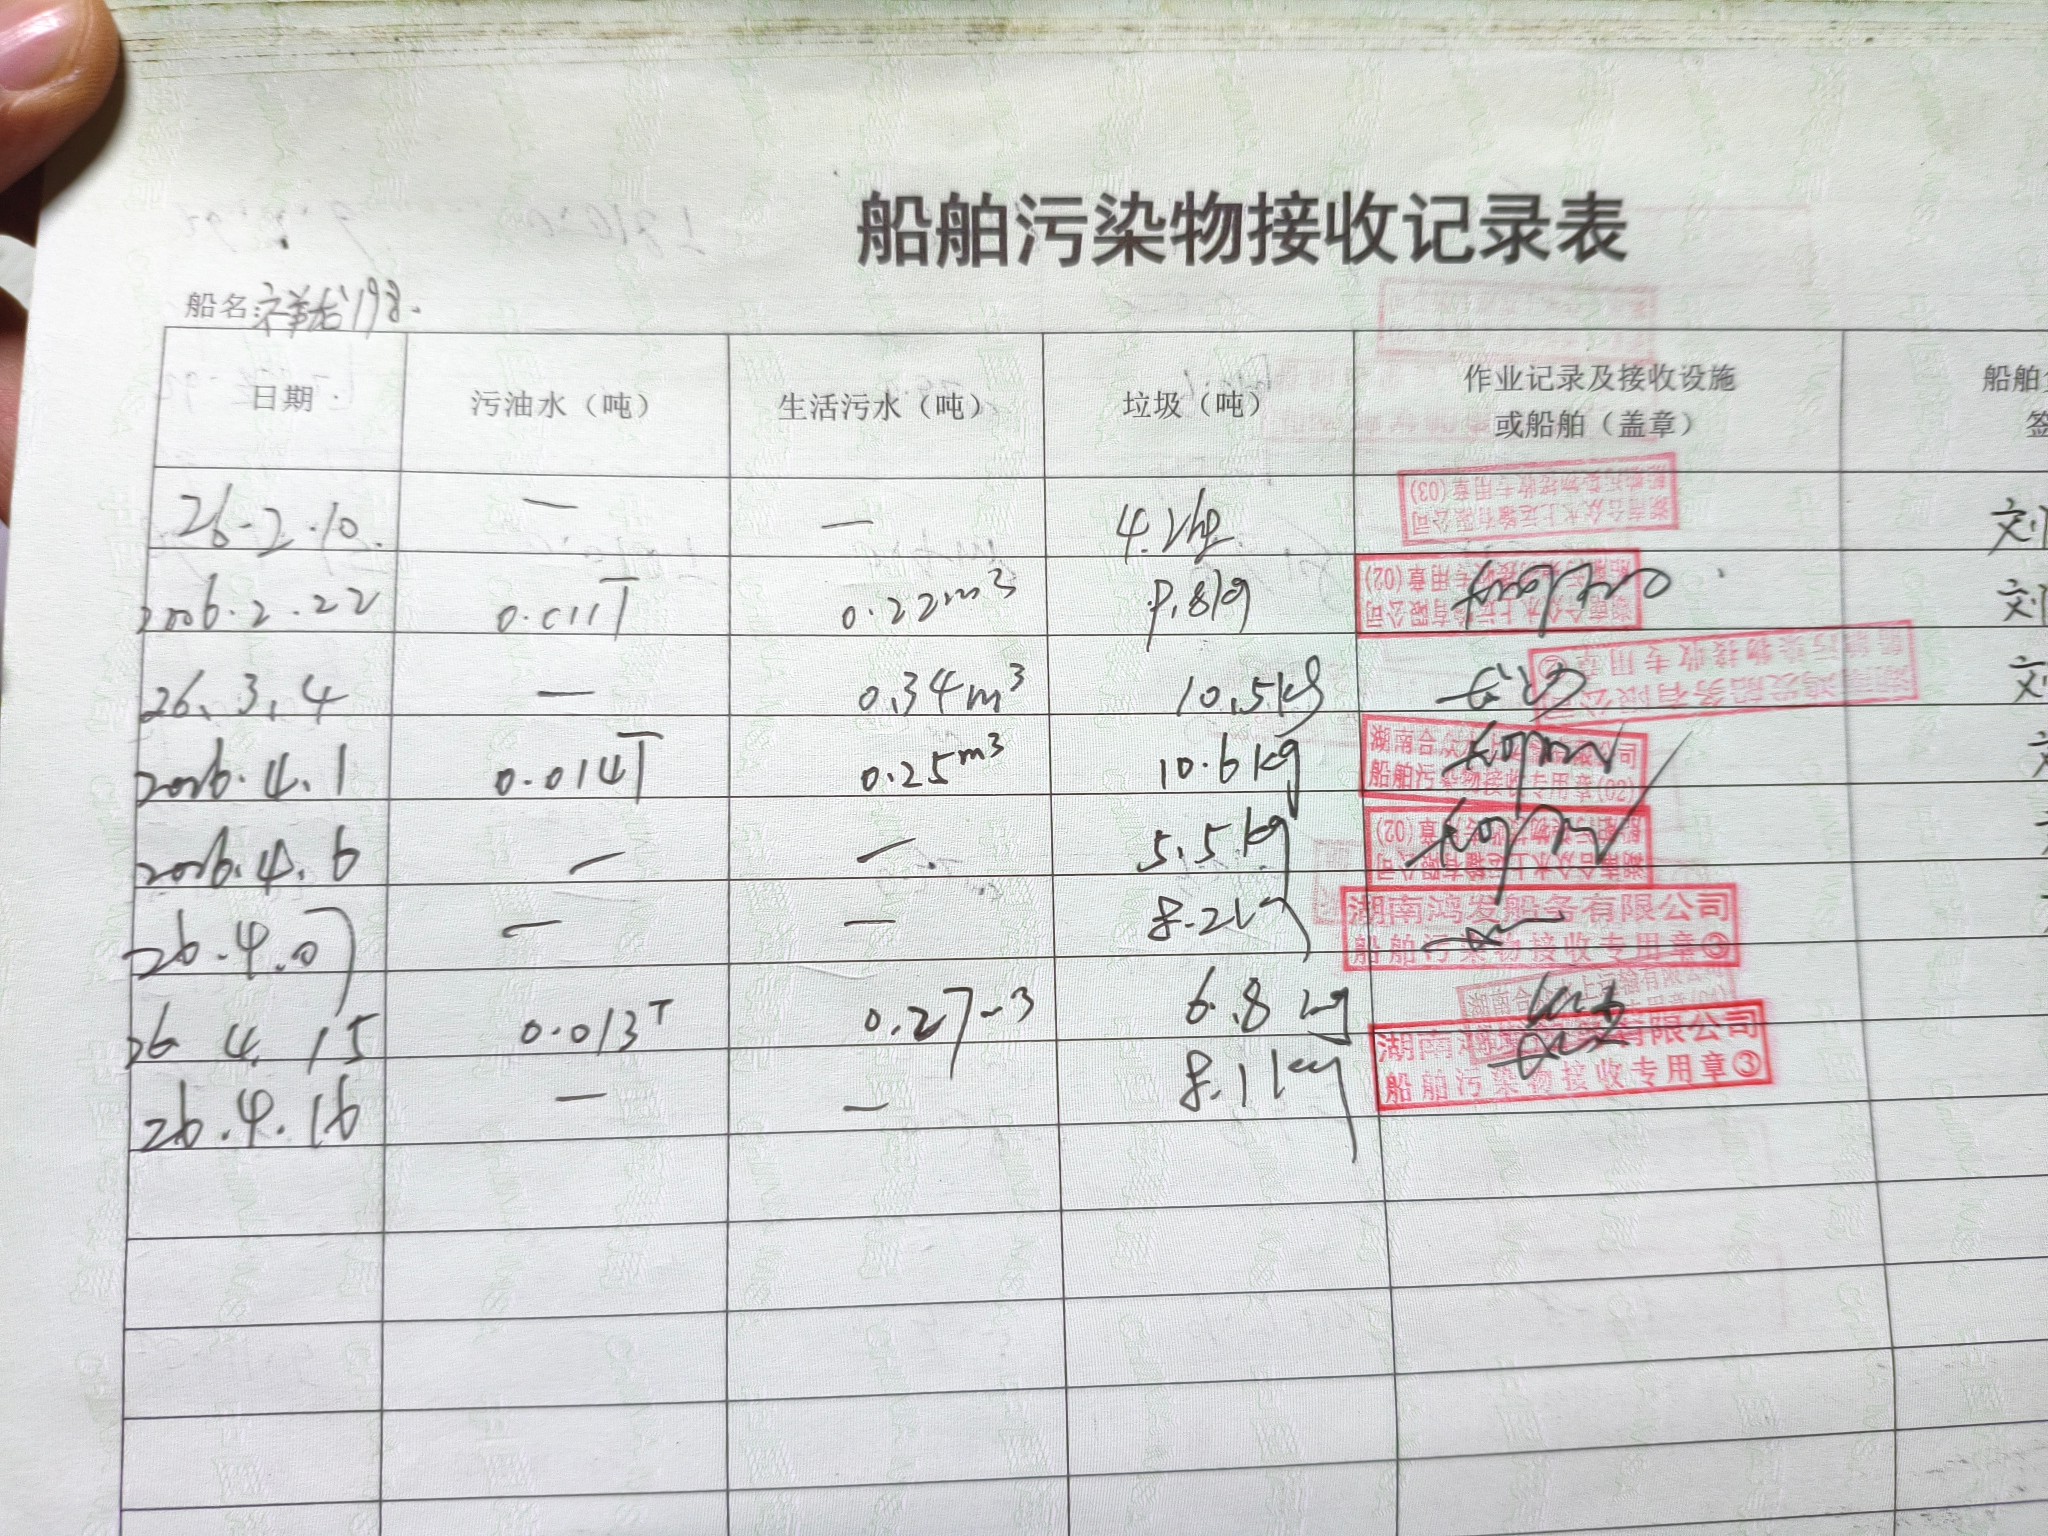 船舶污染物接收记录表
船名: 198.
日期 污油水（吨） 生活污水（吨） 垃圾（吨） 作业记录及接收设施 船舶
或船舶（盖章） 签
26-2.10. — — 4.2kg 刘
湖南合众水上运输有限公司
船舶污染物接收专用章(03)
2026.2.22 0.011T 0.22m³ 9.8kg 刘
湖南合众水上运输有限公司
船舶污染物接收专用章(02)
26.3.4 — 0.34m³ 10.5kg 刘
湖南鸿发船务有限公司
船舶污染物接收专用章②
2026.4.1 0.014T 0.25m³ 10.6kg
湖南合众水上运输有限公司
船舶污染物接收专用章(02)
2026.4.6 — — 5.5kg
湖南合众水上运输有限公司
船舶污染物接收专用章(02)
26.4.07 — — 8.2kg
湖南鸿发船务有限公司
船舶污染物接收专用章③
26 4.15 0.013T 0.27m3 6.8kg
湖南合众水上运输有限公司
26.4.16 — — 8.1kg
湖南鸿发船务有限公司
船舶污染物接收专用章③